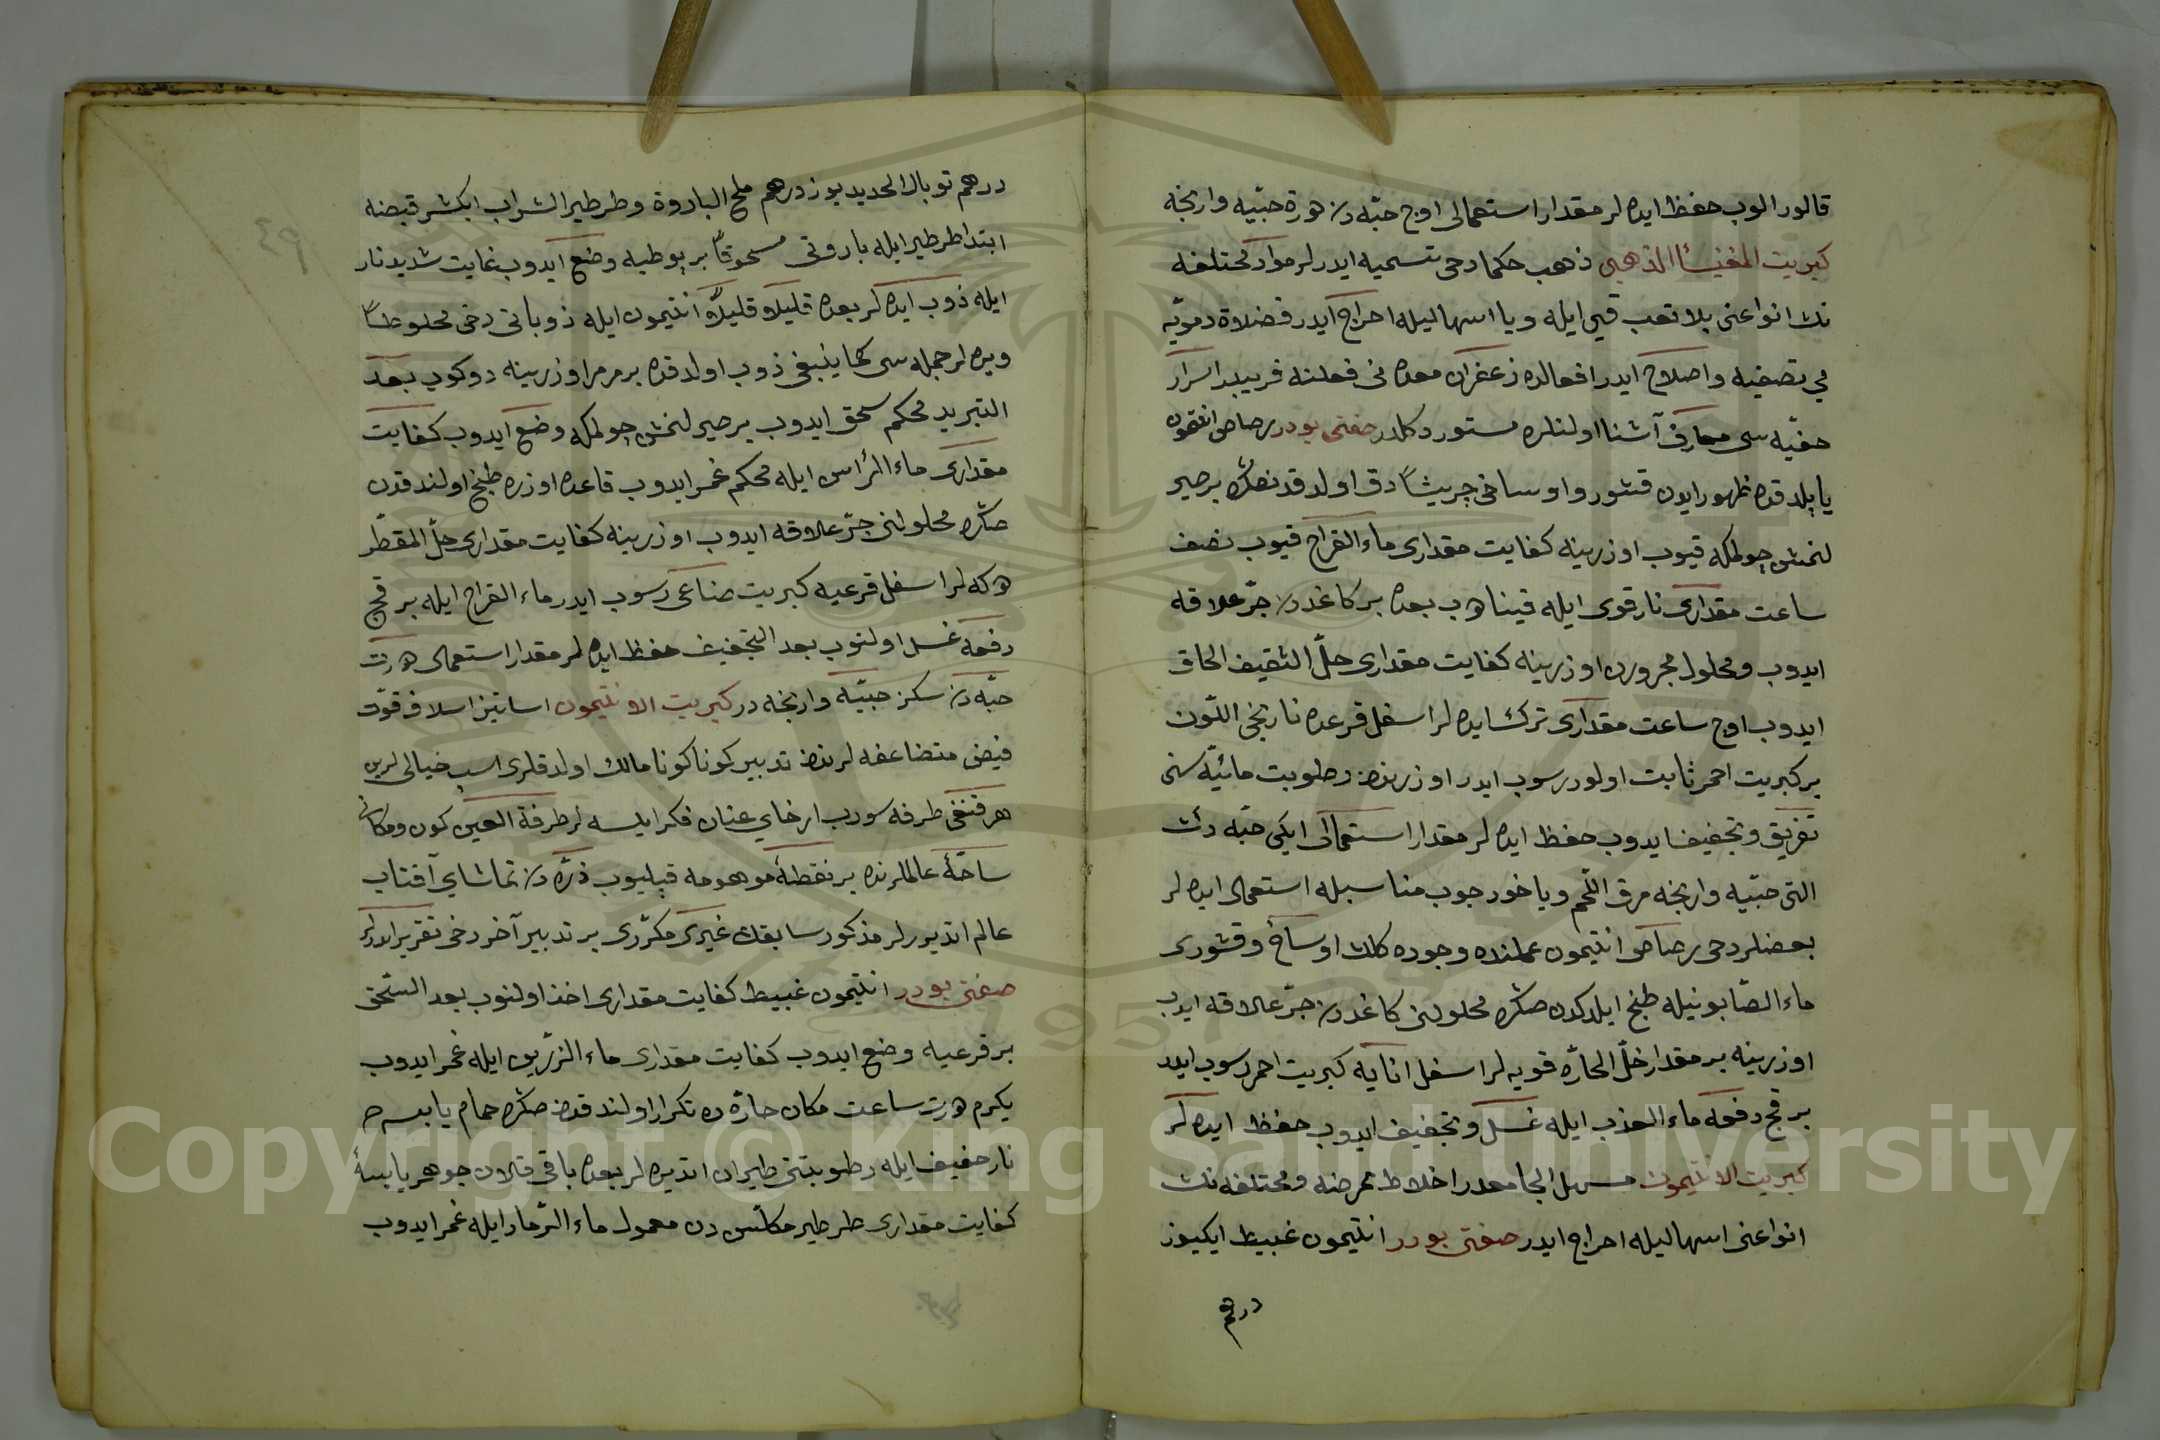 قالور الوب حفظ ایده لر مقدار استعمالی اوچ حبّه دن درة حبّیه وارنجه
كبريت المغنيسا الذهبی ذهب حكمادخی تسمیه ایدرلر مواد مختلفه
نك انواعنی بلا تعب قی ایله ویا اسهالیله احراج ایدر فضلاة دمویّه
یی تصفیه و اصلاح ایدر افعالده زعفران معدنی فعلنه قریبدر اسرار
حفیّه سی معارف آشنا اولنلره مستور دكلدر صفتی بودر رصاص انتقون
یاپلدقده ظهور ایدن قشور و اوساخی جریشاً دق اولدقدنصكره بر صیر
لنمش چولمكه قیوب اوزرینه كفایت مقداری ماء القراح قیوب نصف
ساعت مقداری نار قوی ایله قیناده ب بعده بر كاغددن جرّ علاقه
ایدوب و محلول مجرورن اوزرینه كفایت مقداری خلّ الثقیف الحاق
ایدوب اوچ ساعت مقداری ترك ایده لر اسفل قرعده نارنجی اللّون
بر كبریت احمر ثابت اولور رسوب ایدر اوزرندن رطوبت مائیّه سنی
تفریق و تجفیف ایدوب حفظ ایده لر مقدار استعمالی ایكی حبّه دن
التی حبّیه وارنجه مرق اللّحم ویاخود حبوب مناسبله استعمال ایده لر
بعضلردخی رصاص انتیمون عملنده وجوده كلان اوساخ و قشوری
ماء الصّابونیله طبخ ایلدكدن صكره محلولنی كاغددن جرّ علاقه ایدب
اوزرینه بر مقدار خلّ الحارّه قویه لر اسفل انایه كبریت احمر رسوب ایدر
بر قچ دفعه ماء العذب ایله غسل و تجفیف ایدوب حفظ ایده لر
كبریت الانتیمون مسهل الجامعدر اخلاط ممرضه و مختلفه نك
انواعنی اسهالیله احراج ایدر صفتی بودر انتیمون غبیط ایكیوز
درهم
درهم توبال الحدید یوز درهم ملح البارودة و طرطیر الشراب ایكشر قبضه
ابتدا طرطیر ایله باروتی مسحوقاً بر پوطیه وضع ایدوب غایت شدید نار
ایله ذوب ایده لر بعده قلیلاً و قلیلاً انتیمون ایله ذوبانی دخی مخلوطاً
ویره لر جمله سی كما ینبغی ذوب اولدقده بر مرمر اوزرینه دوكوب بعد
التبرید محكم سحق ایدوب بر صیر لنمش چولمكه وضع ایدوب كفایت
مقداری ماء الرأس ایله محكم غمر ایدوب قاعده اوزره طبخ اولندقدن
صكره محلولنی جرّ علاقه ایدوب اوزرینه كفایت مقداری خلّ المقطّر
دوكه لر اسفل قرعیه كبریت صناعی رسوب ایدر ماء القراح ایله بر قچ
دفعه غسل اولنوب بعد التجفیف حفظ ایده لر مقدار استعمالی درت
حبّه دن سكز حبّیه وارنجه در كبریت الانتیمون اساتیز اسلاف قوّت
فیض متضاعفه لرندن تدبیر كوناكونا مالك اولدقلری اسب خیالی لرین
هر قنغی طرفه سورب ارخای عنان فكر ایلسه لر طرفة العین كون و مكانی
ساحهٔ عالملرنده بر نقطهٔ موهومه قیلیوب ذرّه دن تماشای آفتاب
عالم ایدیورلر مذكور سابقك غیری مكرّری بر تدبیر آخر دخی تقریر ایدرلر
صفتی بودر انتیمون غبیط كفایت مقداری اخذ اولنوب بعد السّحق
بر قرعیه وضع ایدوب كفایت مقداری ماء الزرّین ایله غمر ایدوب
یكرم درت ساعت مكان حارّه ده تكرار اولندقدن صكره حمام یابسده
نار خفیف ایله رطوبتنی طیران ایتدیره لر بعده باقی قلان جوهر یابسهٔ
كفایت مقداری طرطیر مكلّس دن معمول ماء الرّماد ایله غمر ایدوب